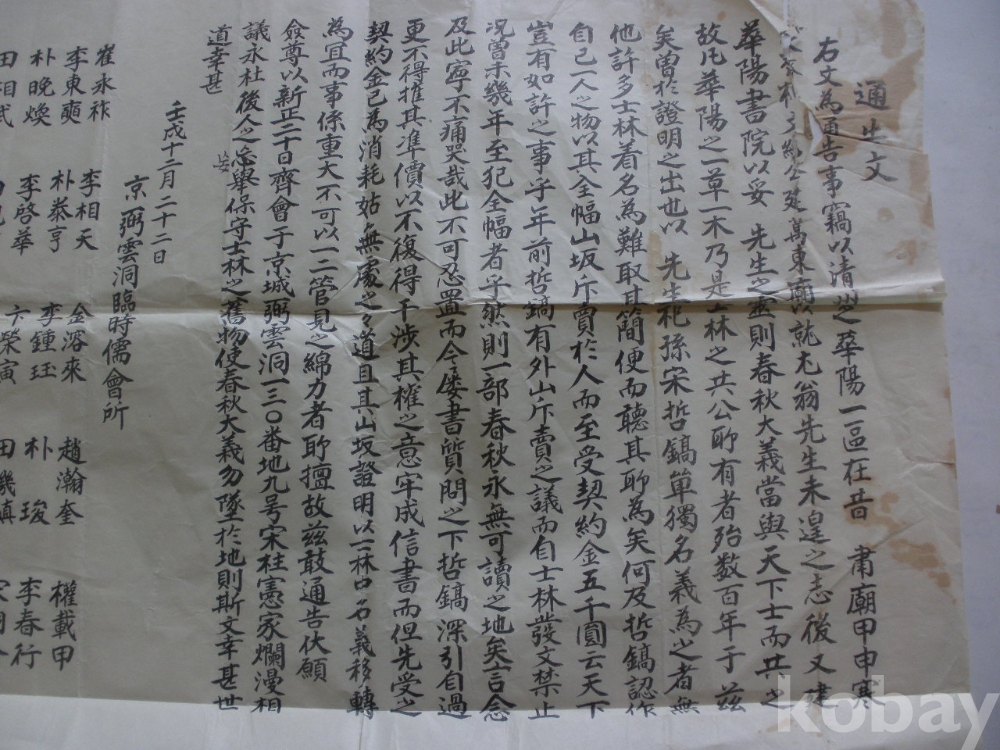 通告文
右文為通告事竊以清州之華陽一區在昔 肅廟甲申寒
建萬東廟以就尤翁先生未遑之志後又建
華陽書院以妥 先生之靈則春秋大義當與天下士而共之
故凡華陽之一草一木乃是士林之共公所有者殆數百年于茲
矣曾於證明之出也以 先生祀孫宋哲鎬單獨名義為之者無
他許多士林着名為難取其簡便而聽其所為矣何及哲鎬認作
自己一人之物以其全幅山坂斥賣於人而至受契約金五千圓云天下
豈有如許之事乎年前哲鎬有外山斥賣之議而自士林發文禁止
况曾未幾年至犯全幅者乎然則一部春秋永無可讀之地矣言念
及此寧不痛哭哉此不可忍置而今屡書質問之下哲鎬深引自過
更不得推其準價以不復得干涉其權之意牢成信書而但先受之
契約金已為消耗姑無處之之道且其山坂證明以一林中名義移轉
為冝而事係重大不可以一二管見之綿力者所擅故茲敢通告伏願
僉尊以新正二十日齊會于京城弼雲洞一三〇番地九号宋柱憲家爛漫相
議永杜後人之忘舉保守士林之舊物使春秋大義勿墜於地則斯文幸甚世
妄
道幸甚
壬戌十二月二十二日
京弼雲洞臨時儒會所
崔永祚 李相天 金溶來 趙瀚奎 權載甲
李東奭 朴泰亨 李鍾珏 朴 埈 李春行
朴晚煥 李啓華 榮寅 田璣鎮
田相武
kobay